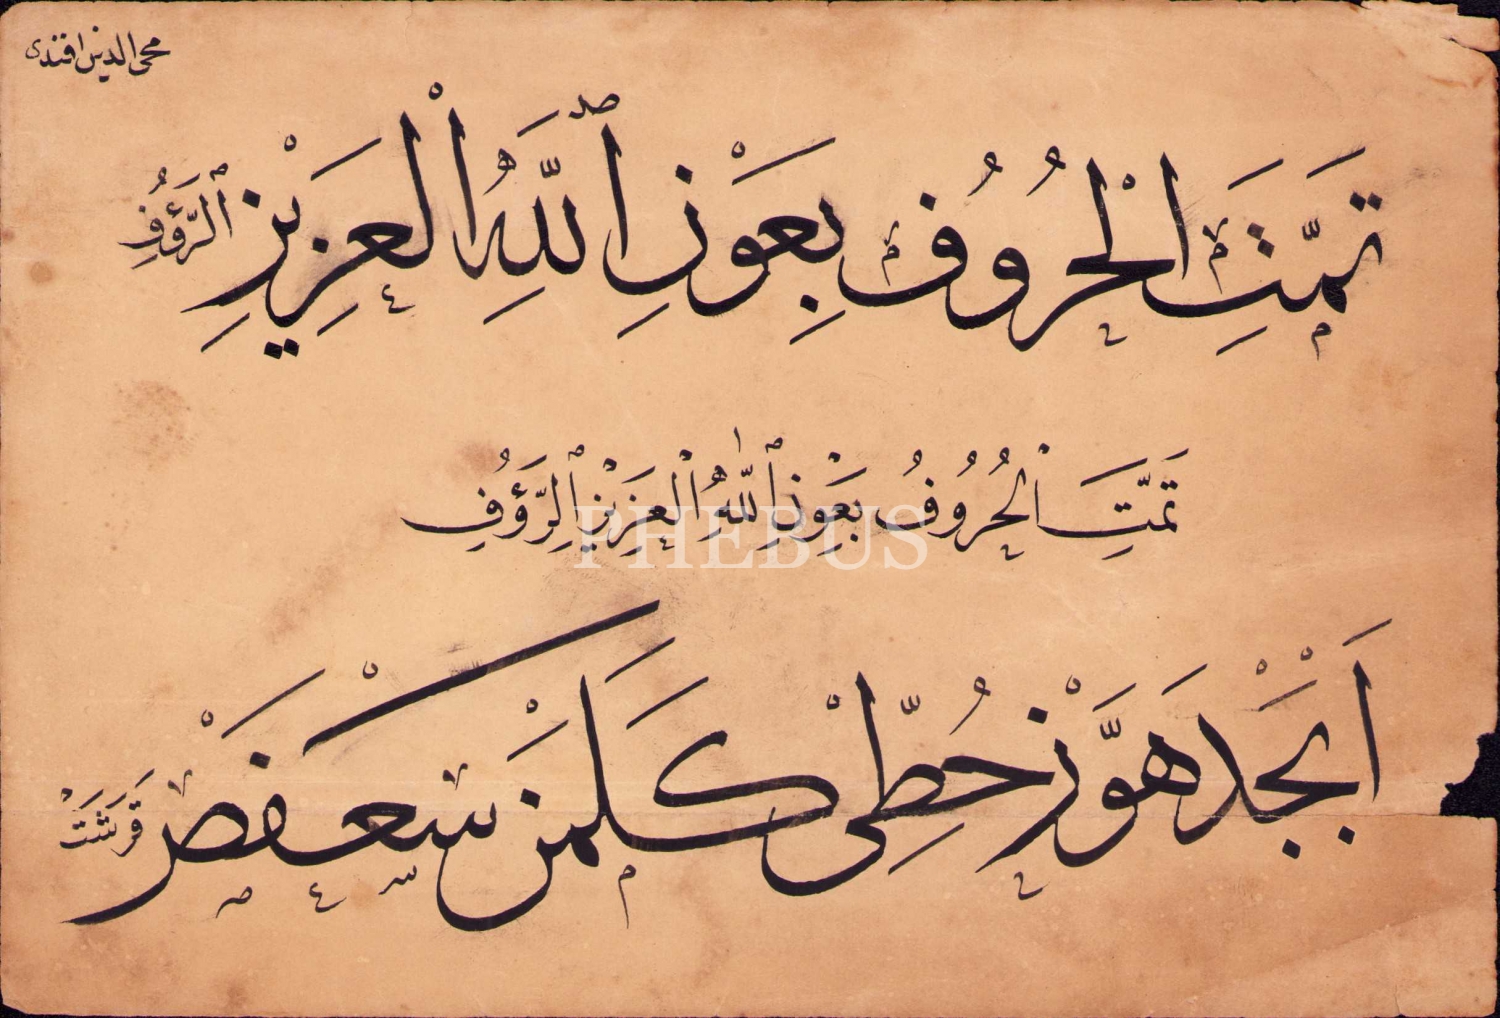 محى الدين افندى
تَمَّتِ الْحُرُوفُ بِعَوْنِ ٱللَّهِ الْعَزِيزِ ٱلرَّؤُفِ
تَمَّتِ الْحُرُوفُ بِعَوْنِ ٱللَّهِ الْعَزِيزِ ٱلرَّؤُفِ
PHEBUS
اَبْجَدْ هَوَّزْ حُطِّىْ كَلَمَنْ سَعْفَصْ قَرَشَتْ